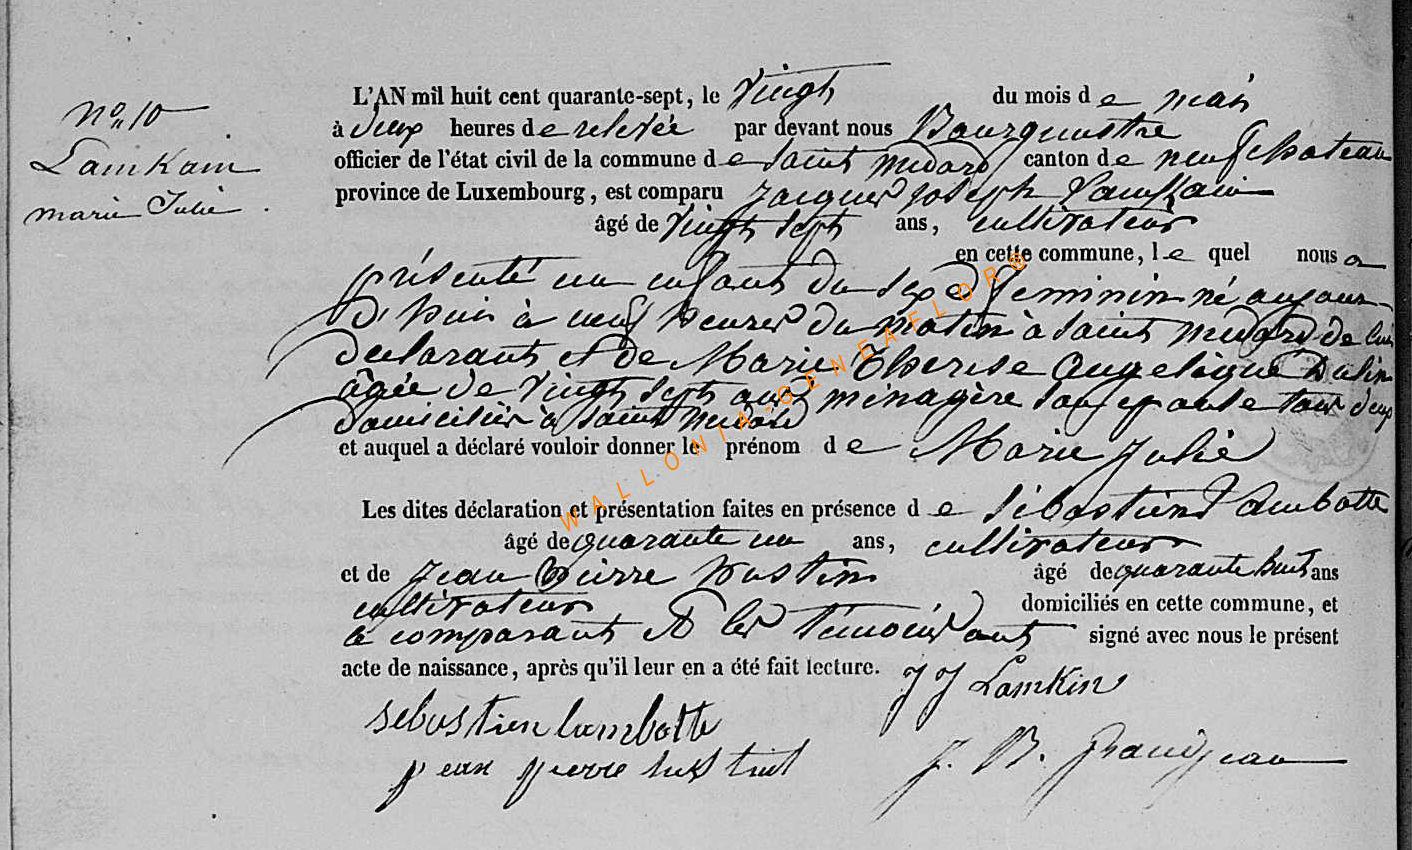 No 10
Lamkain
marie Julie.
L'AN mil huit cent quarante-sept, le vingt du mois de mai
à deux heures de relevée par devant nous Bourguestre
officier de l'état civil de la commune de Saint médard canton de neufchateau
province de Luxembourg, est comparu Jacques Joseph Lamkain
âgé de vingt sept ans, cultivateur
en cette commune, le quel nous a
présenté un enfant du sexe feminin né aujour
d'huis à neuf heures du matin à Saint médard de lui
declarant et de Marie Therese Angelique Dulin
âgée de vingt sept ans ménagère son epouse tous deux
domiciliés à Saint médard
et auquel a déclaré vouloir donner le prénom de Marie Julie
Les dites déclaration et présentation faites en présence de Sébastien Lambotte
âgé de quarante un ans, cultivateur
et de Jean Pierre hustin âgé de quarante huit ans
cultivateur domiciliés en cette commune, et
le comparant et les témoins ont signé avec nous le présent
acte de naissance, après qu'il leur en a été fait lecture.
J J Lamkin
sebastien lambotte
jean pierre hustin
J. B. Grandjean
WALLONIA-GENEAFLOR®